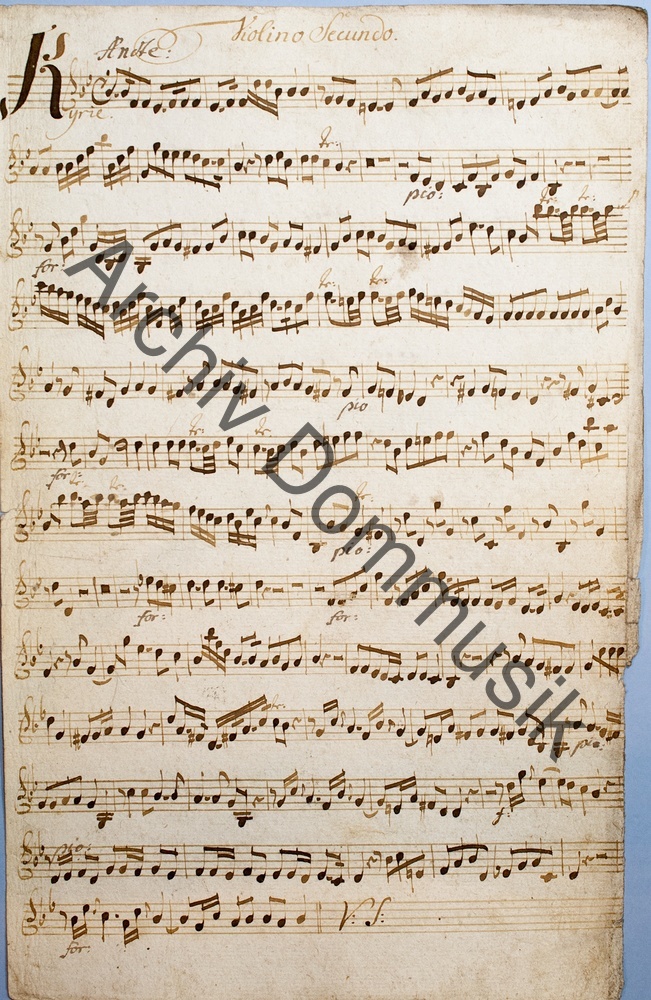 Violino Secundo.
Andte:
Kyrie.
tr:
pio:
tr: tr:
for:
tr: tr:
pio
tr: tr:
for:
tr: tr:
tr:
pio:
for: for:
tr:
pio:
f:
pio:
for:
V: S:
Archiv Dommusik